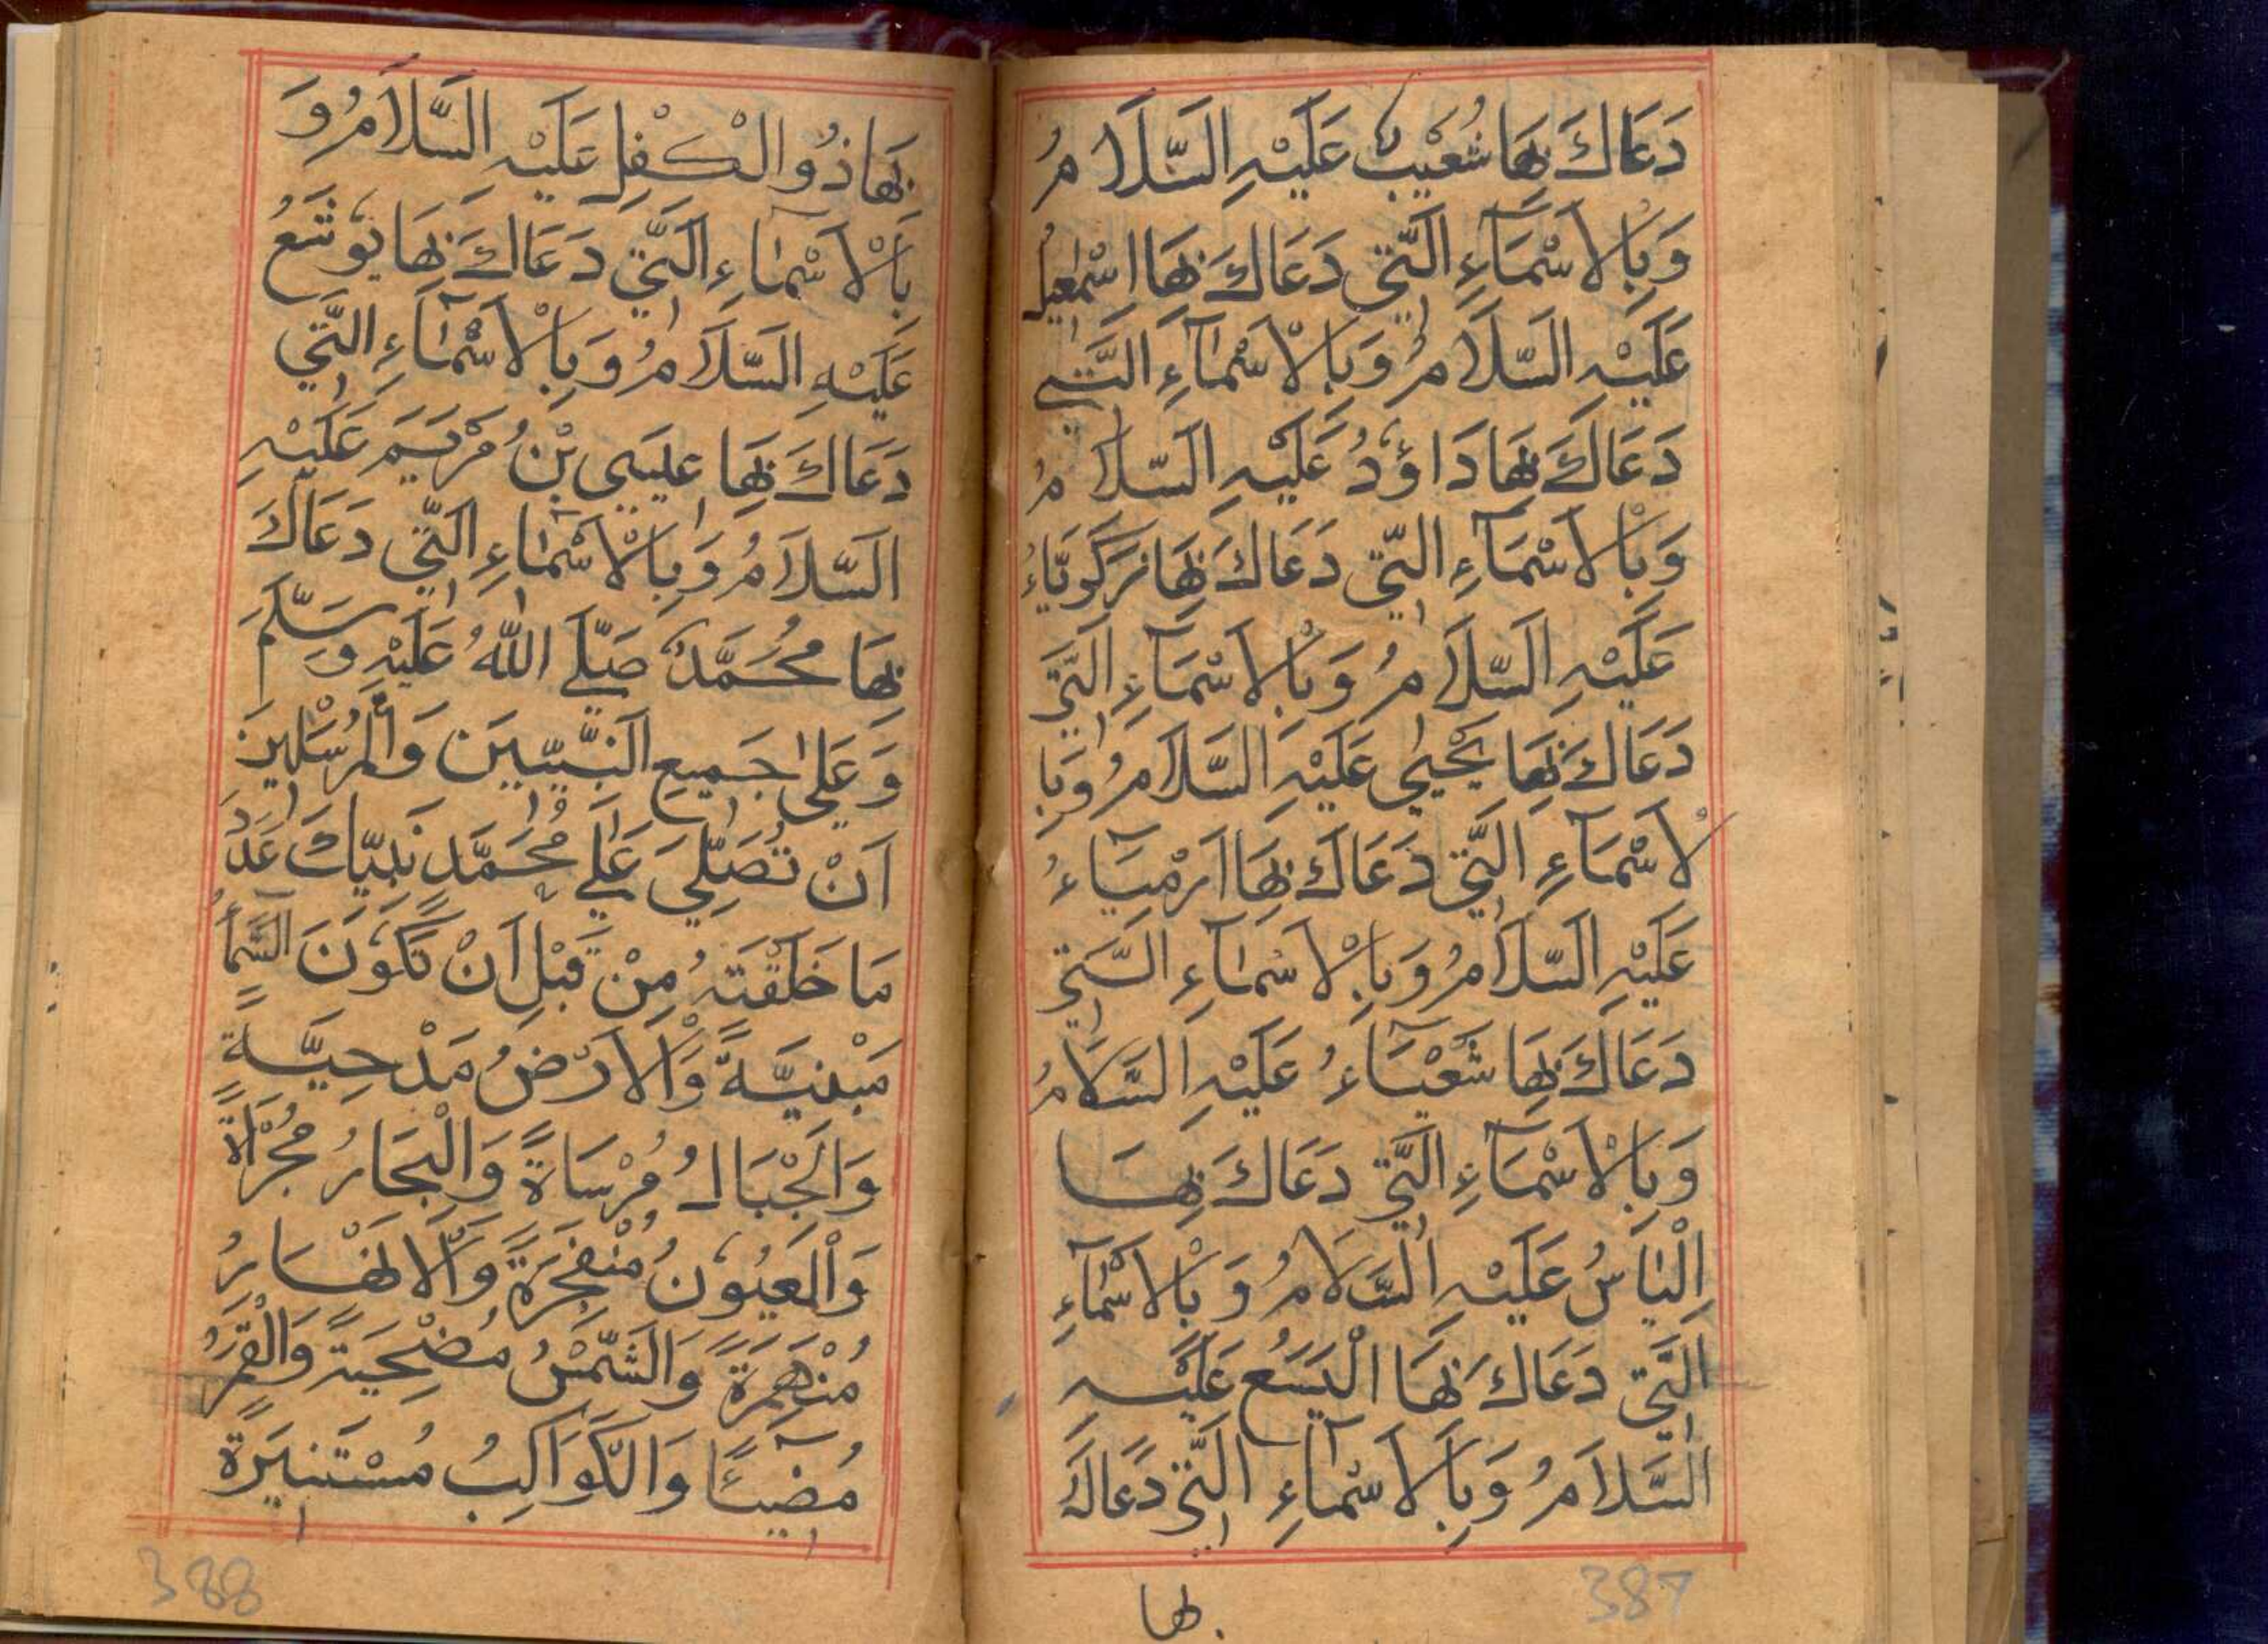 دَعَاكَ بِهَا شُعَيْبُ عَلَيْهِ السَّلَامُ
وَبِالْاَسْمَآءِ الَّتِي دَعَاكَ بِهَا اِسْمٰعِيلُ
عَلَيْهِ السَّلَامُ وَبِالْاَسْمَآءِ الَّتِي
دَعَاكَ بِهَا دَاوُٗدُ عَلَيْهِ السَّلَامُ
وَبِالْاَسْمَآءِ الَّتِي دَعَاكَ بِهَا زَكَرِيَّاءُ
عَلَيْهِ السَّلَامُ وَبِالْاَسْمَآءِ الَّتِي
دَعَاكَ بِهَا يَحْيٰي عَلَيْهِ السَّلَامُ وَبِا
لْاَسْمَآءِ الَّتِي دَعَاكَ بِهَا اَرْمِيَآءُ
عَلَيْهِ السَّلَامُ وَبِالْاَسْمَآءِ الَّتِي
دَعَاكَ بِهَا شَعْيَآءُ عَلَيْهِ السَّلَامُ
وَبِالْاَسْمَآءِ الَّتِي دَعَاكَ بِهَا
اِلْيَاسُ عَلَيْهِ السَّلَامُ وَبِالْاَسْمَآءِ
الَّتِي دَعَاكَ بِهَا الْيَسَعُ عَلَيْهِ
السَّلَامُ وَبِالْاَسْمَآءِ الَّتِي دَعَاكَ
بها
387
بِهَا ذُوالْكِفْلِ عَلَيْهِ السَّلَامُ وَ
بِالْاَسْمَآءِ الَّتِي دَعَاكَ بِهَا يُوْشَعُ
عَلَيْهِ السَّلَامُ وَبِالْاَسْمَآءِ الَّتِي
دَعَاكَ بِهَا عِيسَي بْنُ مَرْيَمَ عَلَيْهِ
السَّلَامُ وَبِالْاَسْمَآءِ الَّتِي دَعَاكَ
بِهَا مُحَمَّدٌ صَلَّي اللّٰهُ عَلَيْهِ وَسَلَّمَ
وَعَلٰي جَمِيعِ النَّبِيِّينَ وَالْمُرْسَلِينَ
اَنْ تُصَلِّيَ عَلٰي مُحَمَّدٍ نَبِيِّكَ عَدَدَ
مَا خَلَقْتَهُ مِنْ قَبْلِ اَنْ تَكُوْنَ السَّمَآءُ
مَبْنِيَّةً وَالْاَرْضُ مَدْحِيَّةً
وَالْجِبَالُ مُرْسَاةً وَالْبِحَارُ مُجْرَاةً
وَالْعُيُوْنُ مُنْفَجِرَةً وَالْاَنْهَارُ
مُنْهَمِرَةً وَالشَّمْسُ مُضْحِيَةً وَالْقَمَرُ
مُضِيْئًا وَالْكَوَاكِبُ مُسْتَنِيرَةً
388